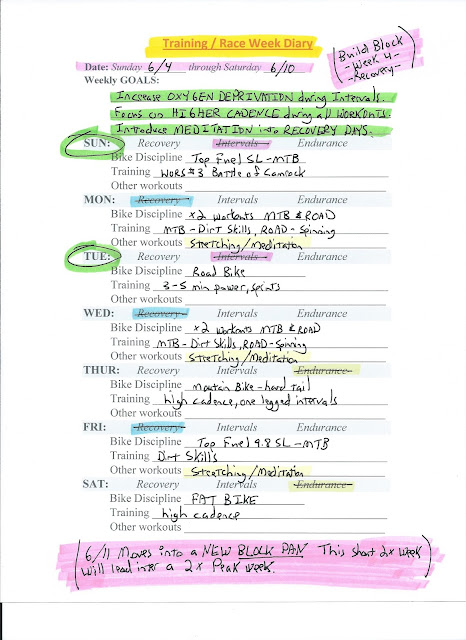 Training / Race Week Diary
Date: Sunday 6/4 through Saturday 6/10
(Build Block
-Week 4-
-Recovery-)
Weekly GOALS:
Increase OXYGEN DEPRIVATION during Intervals.
Focus on HIGHER CADENCE during all WORKOUTS.
Introduce MEDITATION into RECOVERY DAYS.
SUN: Recovery Intervals Endurance
Bike Discipline Top Fuel SL-MTB
Training WORS #3 Battle of Camrock
Other workouts
MON: Recovery Intervals Endurance
Bike Discipline x2 workouts MTB & ROAD
Training MTB-Dirt Skills, ROAD-Spinning
Other workouts Stretching/Meditation
TUE: Recovery Intervals Endurance
Bike Discipline Road Bike
Training 3-5 min power, sprints
Other workouts
WED: Recovery Intervals Endurance
Bike Discipline x2 workouts MTB & ROAD
Training MTB-Dirt Skills, ROAD-Spinning
Other workouts Stretching/Meditation
THUR: Recovery Intervals Endurance
Bike Discipline Moutain Bike-hard tail
Training high cadence, one legged intervals
Other workouts
FRI: Recovery Intervals Endurance
Bike Discipline Top Fuel 9.8 SL-MTB
Training Dirt Skills
Other workouts Stretching/Meditation
SAT: Recovery Intervals Endurance
Bike Discipline FAT BIKE
Training high cadence
Other workouts
(6/11 Moves into a NEW BLOCK PAN This short 2x week
will lead inter a 2x Peak week.)